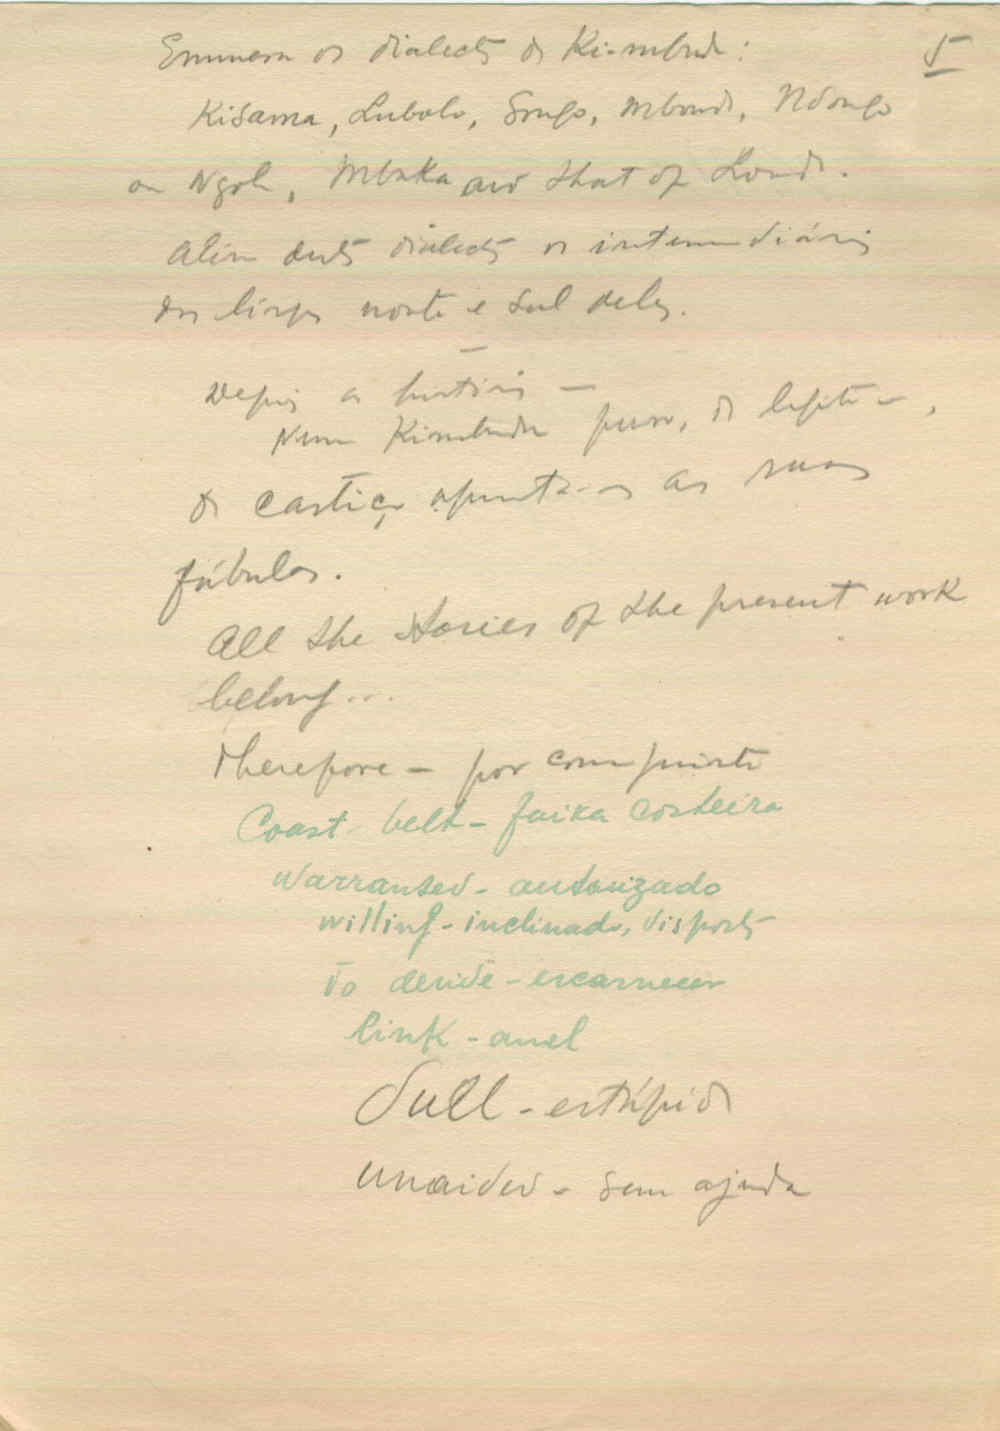 5
Enumera os dialectos do Ki-mbundu:
Kisama, Lubolo, Songo, Mbondo, Ndongo
ou Ngola, Mbaka and that of Loanda.
Além destes dialectos os intermediários
das línguas norte e sul deles.
Depois a história —
Num Kimbundu puro, de
de castiço as suas
fábulas.
All the stories of the present work
belong...
Therefore - por
Coast-belt - faixa costeira
Warranted - autorizado
willing - inclinado, disposto
To deride - escarnecer
link - anel
Dull - estúpido
unaided - sem ajuda